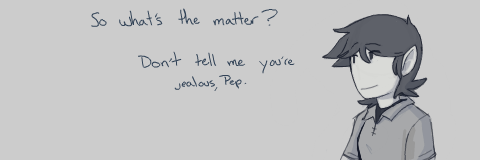 So what's the matter?
Don't tell me you're
jealous, Pep.